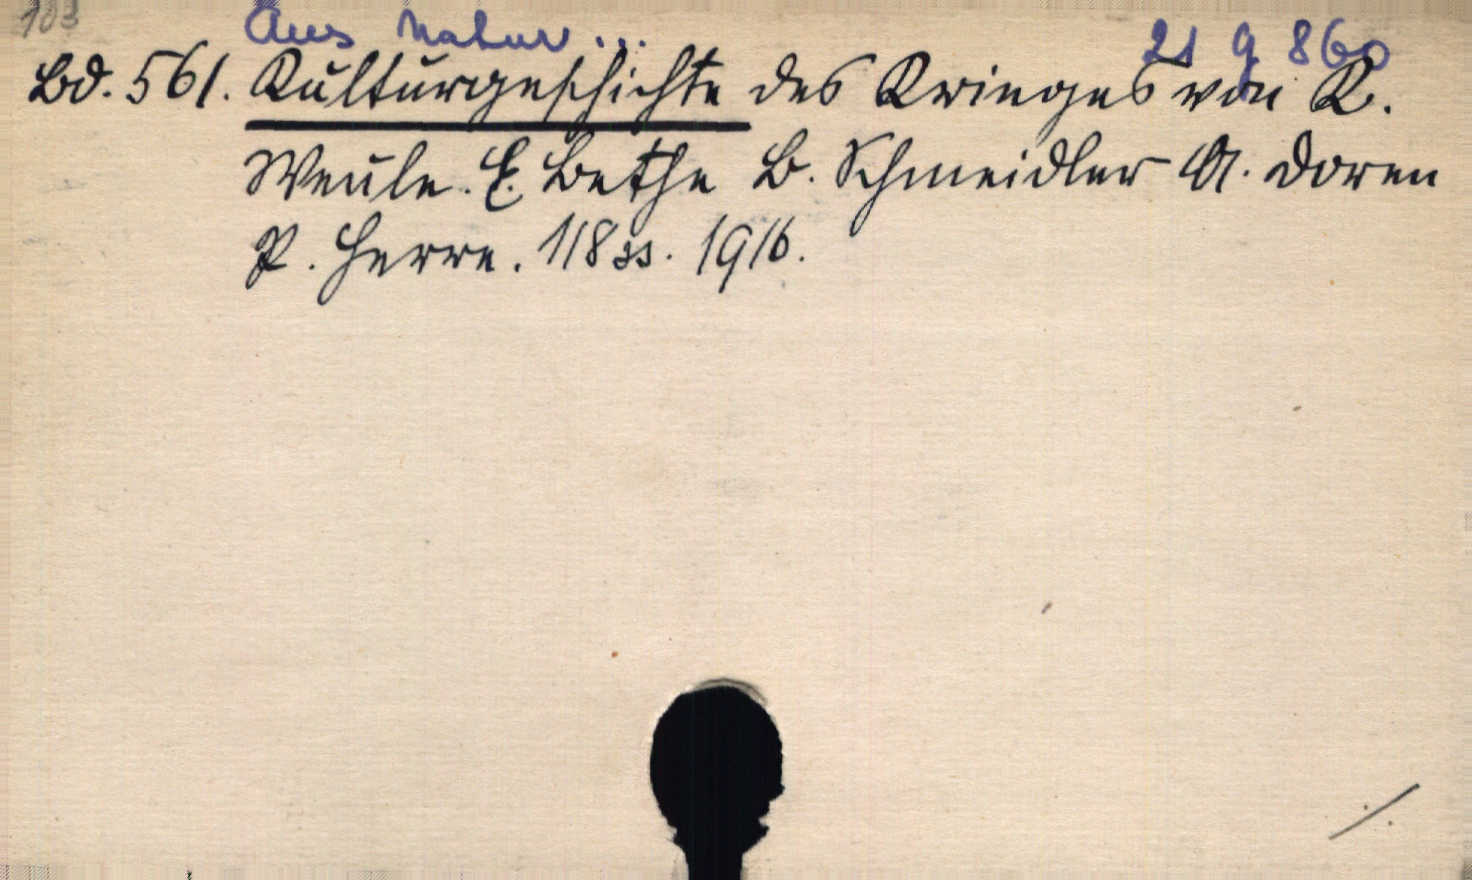 103
Aus Natur ... 21 g 860
Bd. 561. Kulturgeschichte des Krieges von K.
Weule. E. Bethe B. Schmeidler A. Doren
P. Herre. 118 ss. 1916.